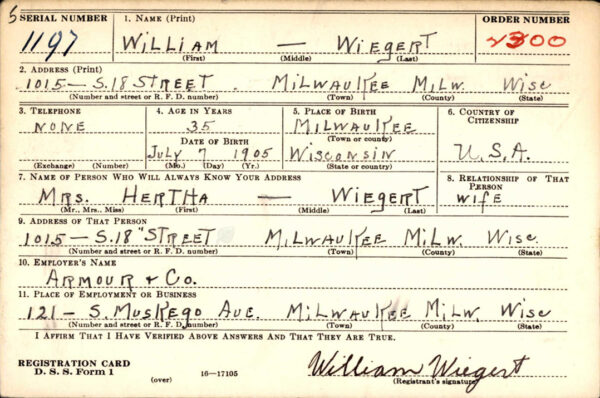 5
SERIAL NUMBER 1. NAME (Print) ORDER NUMBER
1197 WILLIAM — WIEGERT
(First) (Middle) (Last)
2. ADDRESS (Print)
1015 — S. 18 STREET. MILWAUKEE MILW. WISC
(Number and street or R. F. D. number) (Town) (County) (State)
3. TELEPHONE 4. AGE IN YEARS 5. PLACE OF BIRTH 6. COUNTRY OF CITIZENSHIP
NONE 35 MILWAUKEE
DATE OF BIRTH (Town or county)
July 7 1905 WISCONSIN U.S.A.
(Exchange) (Number) (Mo.) (Day) (Yr.) (State or country)
7. NAME OF PERSON WHO WILL ALWAYS KNOW YOUR ADDRESS 8. RELATIONSHIP OF THAT PERSON
MRS. HERTHA — WIEGERT WIFE
(Mr., Mrs., Miss) (First) (Middle) (Last)
9. ADDRESS OF THAT PERSON
1015 — S. 18 " STREET MILWAUKEE MILW. WISC.
(Number and street or R. F. D. number) (Town) (County) (State)
10. EMPLOYER'S NAME
ARMOUR & CO.
11. PLACE OF EMPLOYMENT OR BUSINESS
121 — S. MUSKEGO AVE. MILWAUKEE MILW. WISC
(Number and street or R. F. D. number) (Town) (County) (State)
I AFFIRM THAT I HAVE VERIFIED ABOVE ANSWERS AND THAT THEY ARE TRUE.
REGISTRATION CARD
D. S. S. Form 1 (over) 16—17105 William Wiegert
(Registrant's signature)